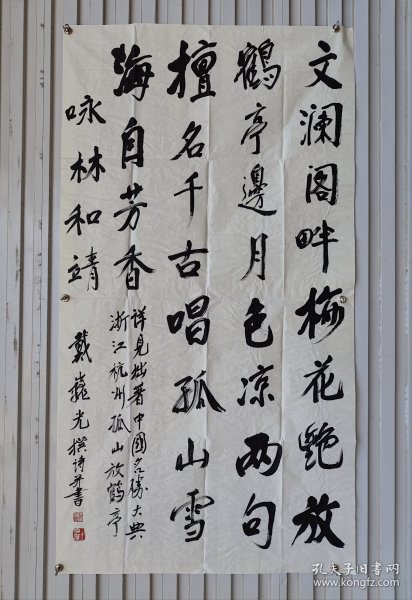 文澜阁畔梅花艳放
鹤亭邊月色凉两句
擅名千古唱孤山雪
海自芳香
詳見拙著中國名勝大典
浙江杭州孤山放鶴亭
咏林和靖
戴 光撰诗并書
孔夫子旧书网
www.kongfz.com